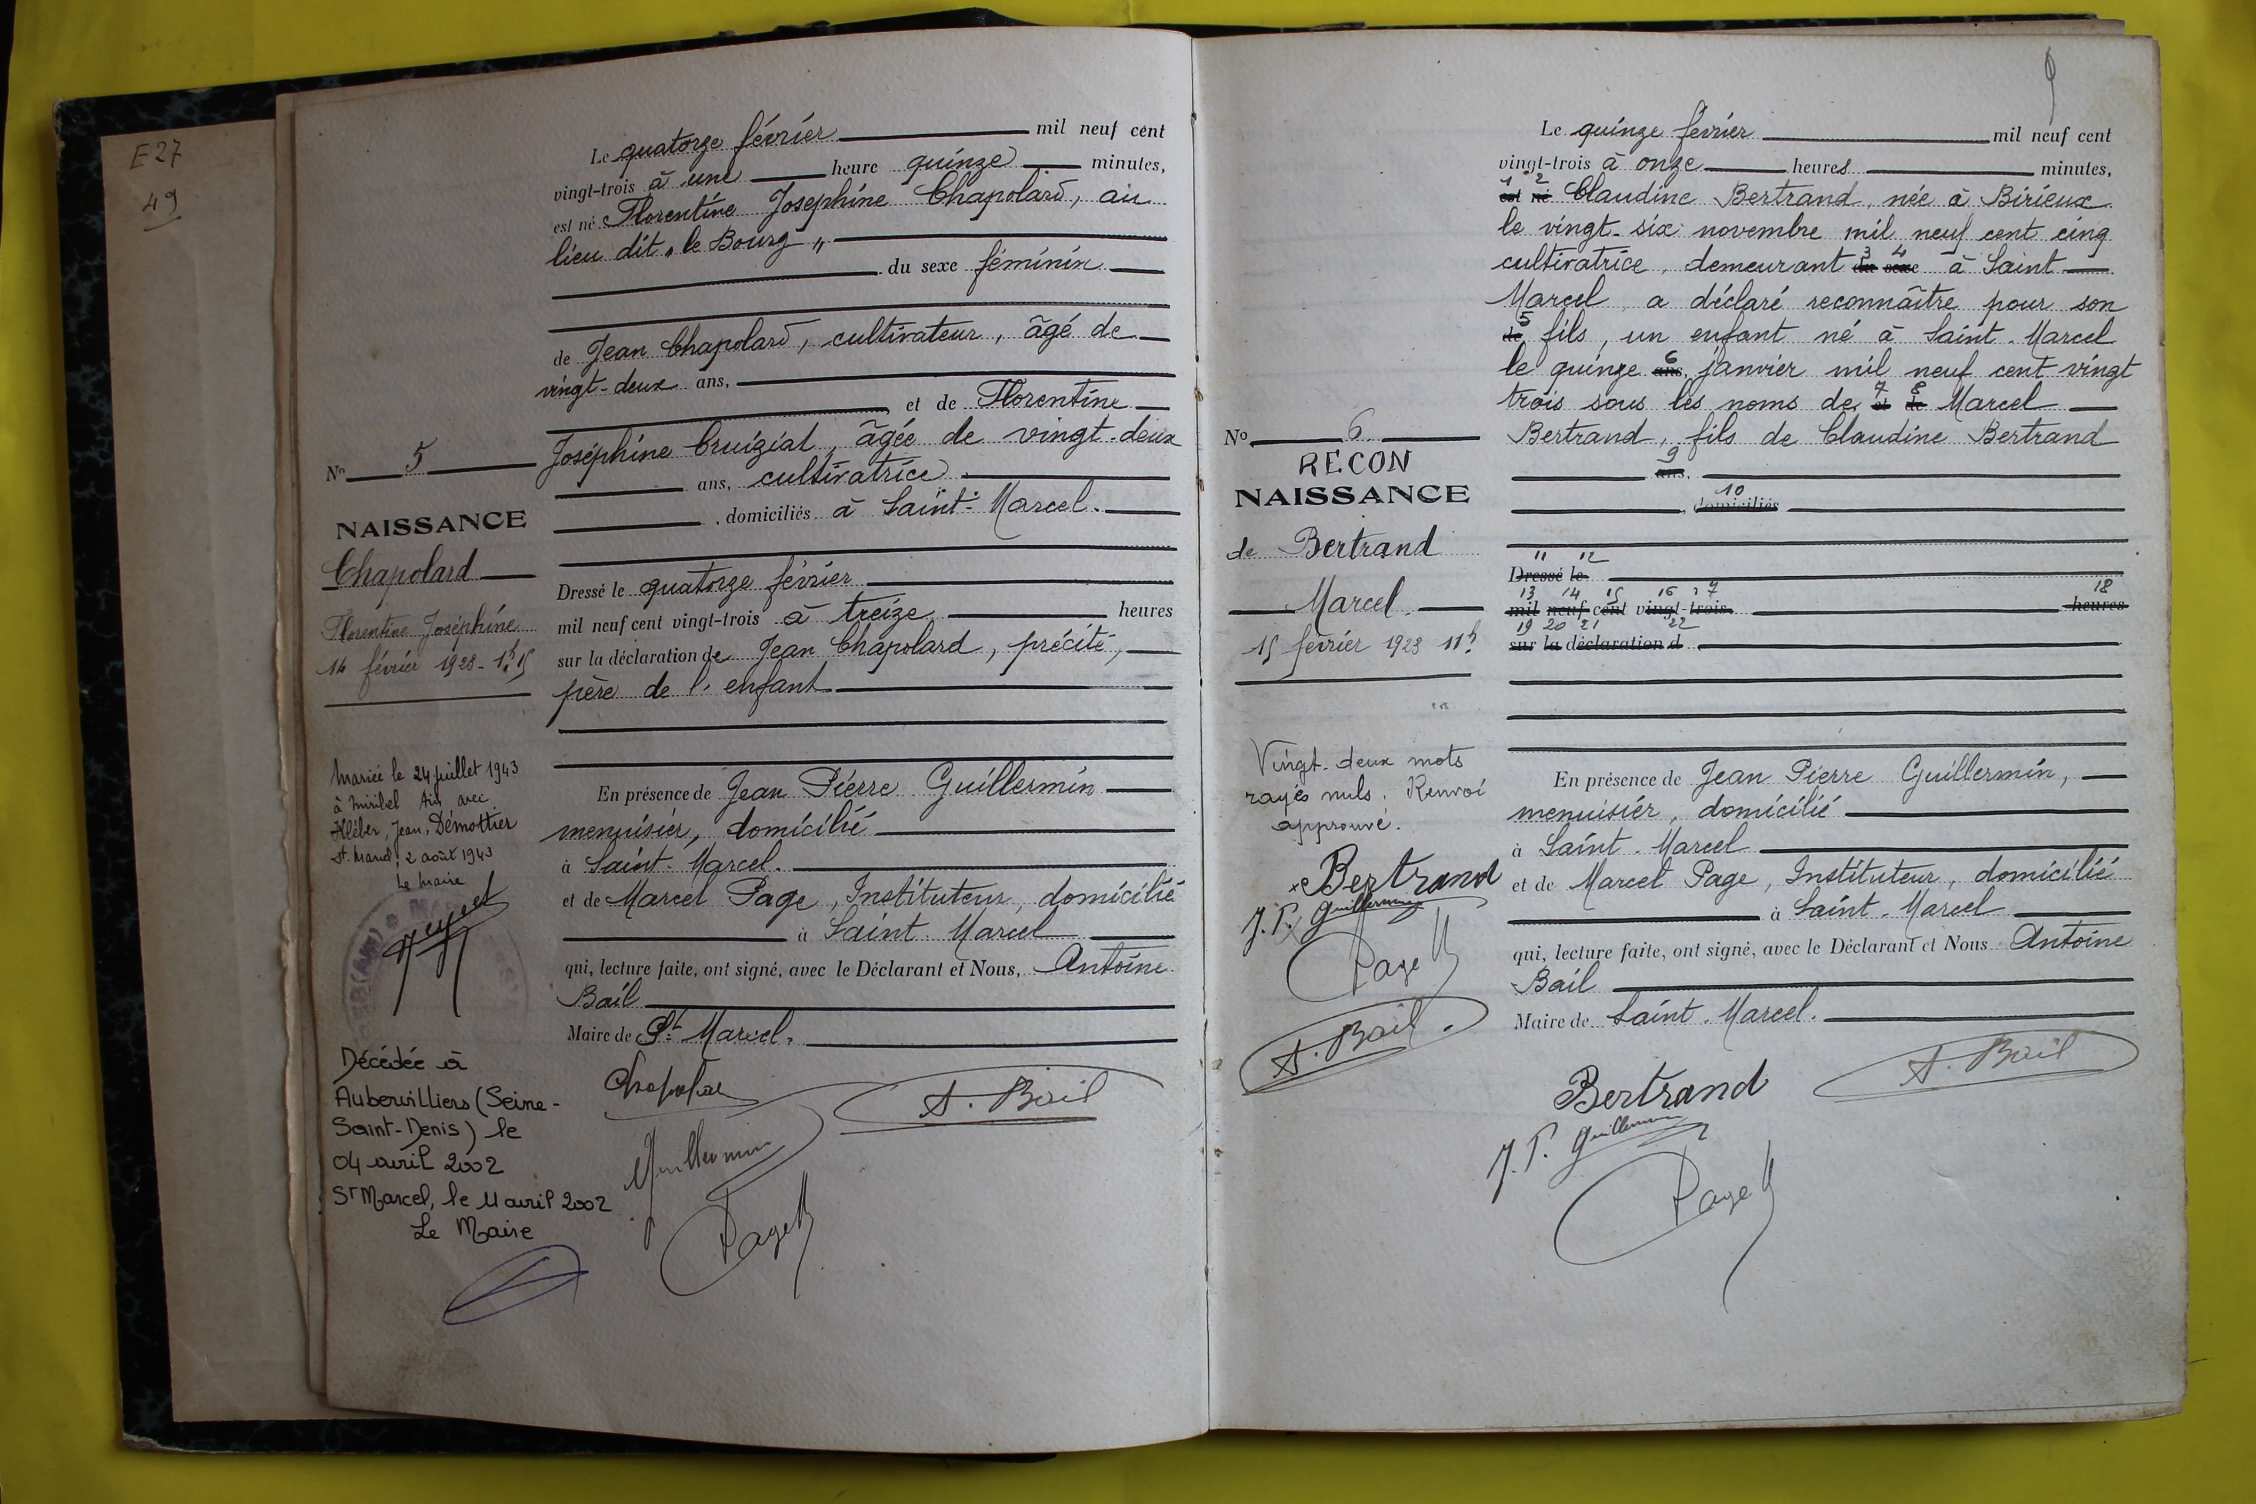 E27
49
Le quatorze février mil neuf cent
vingt-trois à une heure quinze minutes,
est né Florentine Joséphine Chapolard, au
lieu dit "le Bourg"
du sexe féminin
de Jean Chapolard, cultivateur, âgé de
vingt-deux ans,
et de Florentine
Joséphine Cruizial, âgée de vingt-deux
ans, cultivatrice
, domiciliés à Saint-Marcel.
Dressé le quatorze février
mil neuf cent vingt-trois à treize heures
sur la déclaration de Jean Chapolard, précité,
père de l'enfant
En présence de Jean Pierre Guillermin
menuisier, domicilié
à Saint-Marcel.
et de Marcel Page, Instituteur, domicilié
à Saint-Marcel
qui, lecture faite, ont signé, avec le Déclarant et Nous, Antoine
Bail
Maire de St Marcel.
Chapolard
A. Bail
Guillermin
Page
No 5
NAISSANCE
Chapolard
Florentine Joséphine
14 février 1923 - 1h15
Mariée le 24 juillet 1943
à Miribel Ain avec
Kléber, Jean, Démottier
St. Marcel, 2 août 1943
Le Maire
Décédée à
Aubervilliers (Seine-
Saint-Denis) le
04 avril 2002
St Marcel, le 11 avril 2002
Le Maire
Le quinze février mil neuf cent
vingt-trois à onze heures minutes,
1 2
est né Claudine Bertrand, née à Birieux
le vingt-six novembre mil neuf cent cinq
3 4
cultivatrice, demeurant du sexe à Saint
Marcel, a déclaré reconnaître pour son
5
de fils, un enfant né à Saint-Marcel
6
le quinze ans, janvier mil neuf cent vingt
7 8
trois sous les noms de et de Marcel
Bertrand, fils de Claudine Bertrand
9
ans,
10
, domiciliés
11 12
Dressé le
13 14 15 16 17 18
mil neuf cent vingt-trois heures
19 20 21 22
sur la déclaration d
En présence de Jean Pierre Guillermin,
menuisier, domicilié
à Saint-Marcel
et de Marcel Page, Instituteur, domicilié
à Saint-Marcel
qui, lecture faite, ont signé, avec le Déclarant et Nous Antoine
Bail
Maire de Saint-Marcel.
A. Bail
Bertrand
J. P. Guillermin
Page
No 6
RECON
NAISSANCE
de Bertrand
Marcel.
15 février 1923 11h
Vingt-deux mots
rayés nuls. Renvoi
approuvé.
Bertrand
J. P. Guillermin
Page
A. Bail.